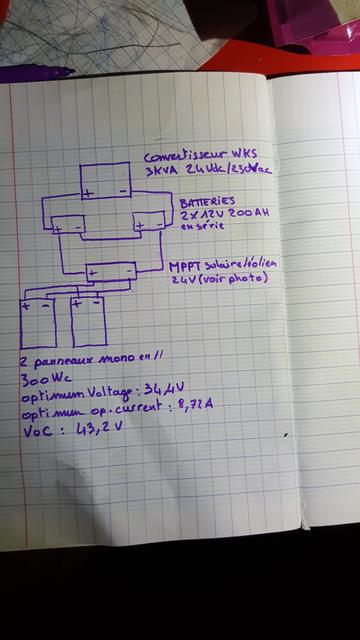 Convertisseur WKS
3KVA 24Vdc/230Vac
+ -
BATTERIES
2x12V 200AH
en série
+ - + -
MPPT solaire/éolien
24V (voir photo)
+ -
+ - + -
2 panneaux mono en //
300Wc
optimum Voltage: 34,4V
optimum op. current: 8,72A
VOC : 43,2V